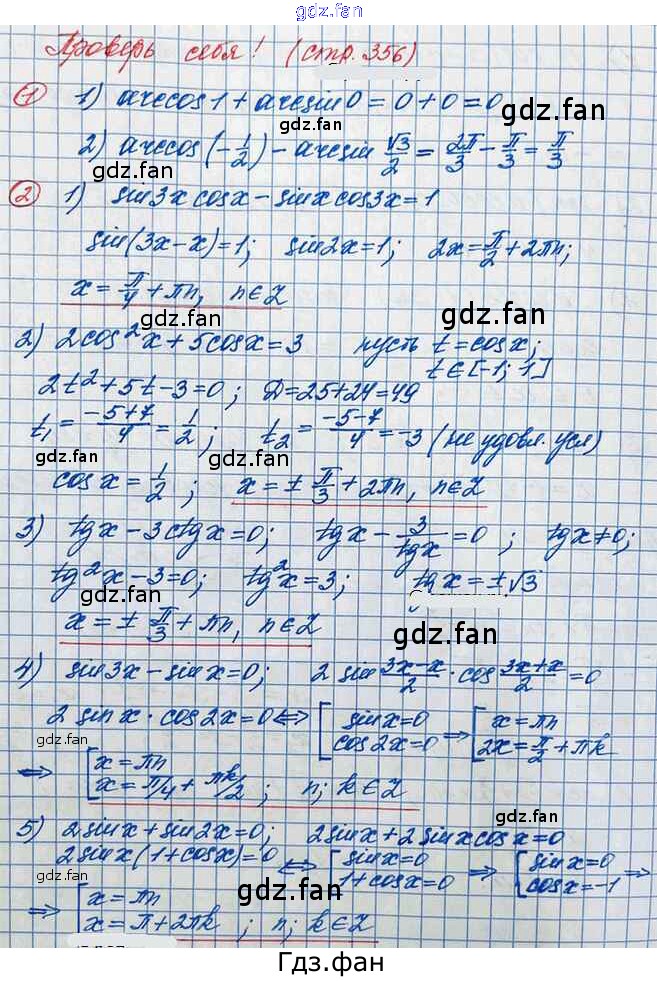 gdz.fan
Проверь себя! (стр. 356)
gdz.fan
1 1) arccos 1 + arcsin 0 = 0 + 0 = 0
gdz.fan
2) arccos(-1/2) - arcsin √3/2 = 2π/3 - π/3 = π/3
gdz.fan gdz.fan
2 1) sin 3x cos x - sin x cos 3x = 1
sin(3x-x)=1; sin 2x = 1; 2x = π/2 + 2πn;
x = π/4 + πn, n∈Z
gdz.fan gdz.fan
2) 2cos²x + 5cosx = 3 пусть t = cosx;
t∈[-1; 1]
2t² + 5t - 3 = 0; D = 25+24 = 49
t₁ = (-5+7)/4 = 1/2; t₂ = (-5-7)/4 = -3 (не удовл. усл)
gdz.fan gdz.fan
cosx = 1/2; x = ± π/3 + 2πn, n∈Z
3) tgx - 3ctgx = 0; tgx - 3/tgx = 0; tgx≠0;
gdz.fan
tg²x - 3 = 0; tg²x = 3; tgx = ±√3
gdz.fan gdz.fan
x = ± π/3 + πn, n∈Z
gdz.fan
4) sin3x - sinx = 0; 2 sin (3x-x)/2 · cos (3x+x)/2 = 0
2 sinx · cos2x = 0 ⇔ [ sinx = 0 cos2x = 0 ⇒ [ x = πn 2x = π/2 + πk
gdz.fan gdz.fan
⇒ [ x = πn x = π/4 + πk/2; n; k∈Z
gdz.fan
5) 2sinx + sin2x = 0; 2sinx + 2sinxcosx = 0
2sinx(1+cosx) = 0 ⇔ [ sinx = 0 1+cosx = 0 ⇒ [ sinx = 0 cosx = -1 ⇒
gdz.fan gdz.fan gdz.fan
⇒ [ x = πn x = π + 2πk; n; k∈Z
gdz.fan
Гдз.фан